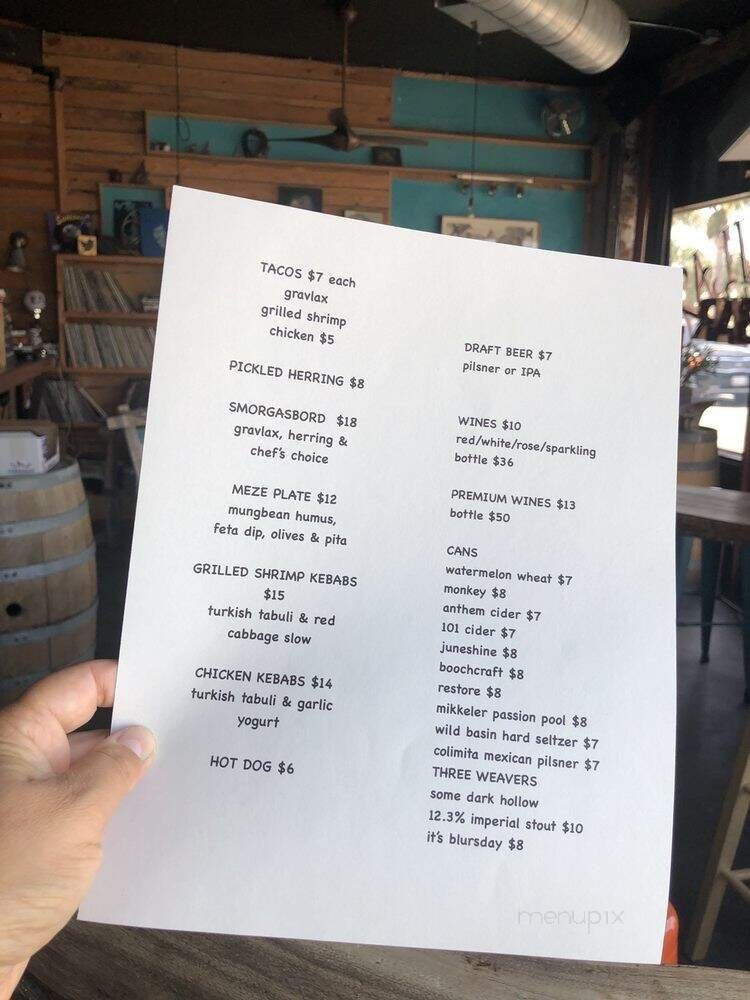 TACOS $7 each
gravlax
grilled shrimp
chicken $5
PICKLED HERRING $8
SMORGASBORD $18
gravlax, herring &
chef's choice
MEZE PLATE $12
mungbean humus,
feta dip, olives & pita
GRILLED SHRIMP KEBABS
$15
turkish tabuli & red
cabbage slow
CHICKEN KEBABS $14
turkish tabuli & garlic
yogurt
HOT DOG $6
DRAFT BEER $7
pilsner or IPA
WINES $10
red/white/rose/sparkling
bottle $36
PREMIUM WINES $13
bottle $50
CANS
watermelon wheat $7
monkey $8
anthem cider $7
101 cider $7
juneshine $8
boochcraft $8
restore $8
mikkeler passion pool $8
wild basin hard seltzer $7
colimita mexican pilsner $7
THREE WEAVERS
some dark hollow
12.3% imperial stout $10
it's blursday $8
menupix